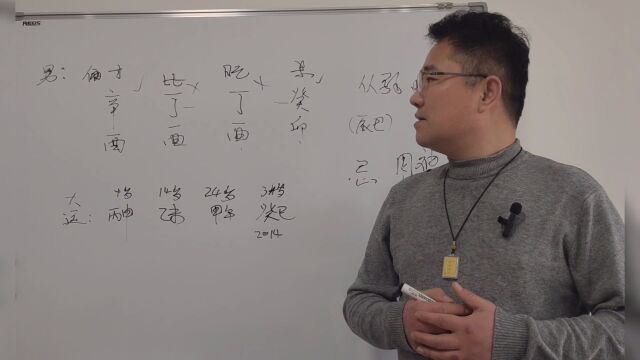 男：偏才 比 肥 杀
辛 丁 丁 癸
酉 酉 酉 卯
从弱
(辰巳)
忌 

大 4岁 14岁 24岁 34岁
运：丙申 乙未 甲午 癸巳
2014